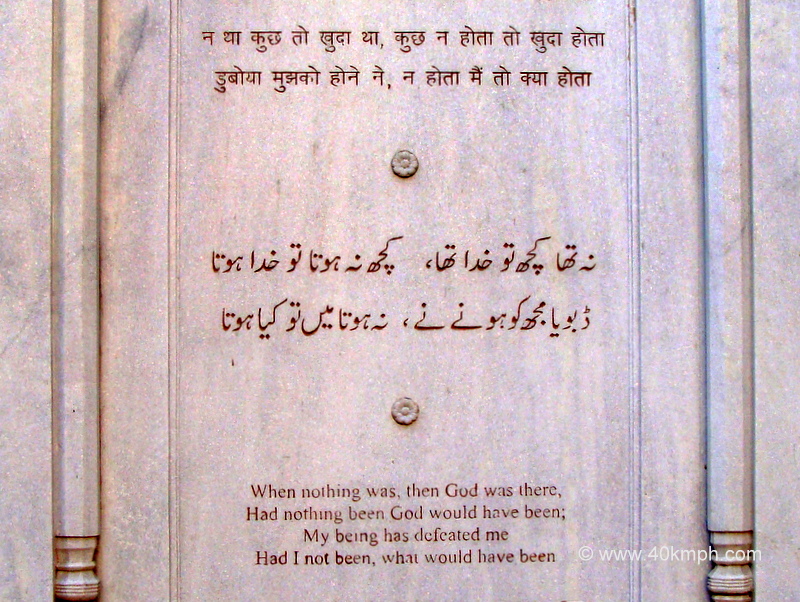 न था कुछ तो ख़ुदा था, कुछ न होता तो ख़ुदा होता
डुबोया मुझको होने ने, न होता मैं तो क्या होता
نہ تھا کچھ تو خدا تھا، کچھ نہ ہوتا تو خدا ہوتا
ڈبویا مجھ کو ہونے نے، نہ ہوتا میں تو کیا ہوتا
When nothing was, then God was there,
Had nothing been God would have been;
My being has defeated me
Had I not been, what would have been
© www.40kmph.com